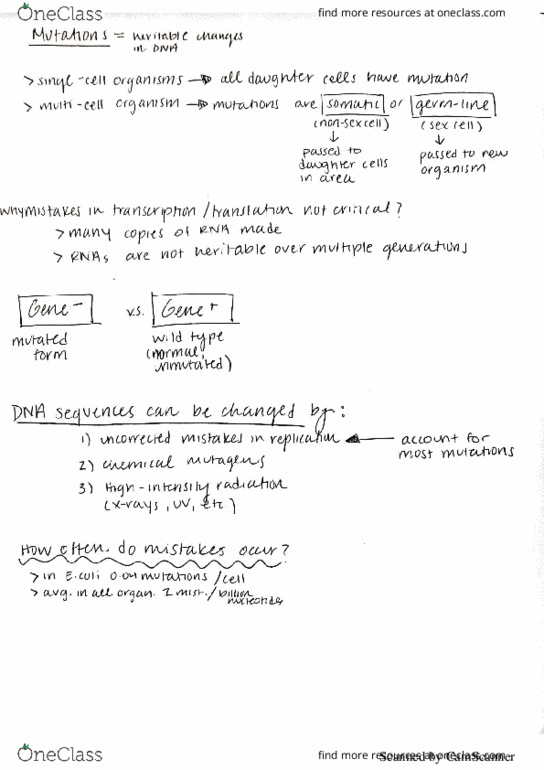 OneClass find more resources at oneclass.com
Mutations = heritable changes
in DNA
> singl-cell organisms → all daughter cells have mutation
> multi-cell organism → mutations are somatic or germ-line
(non-sex cell) (sex cell)
↓ ↓
passed to passed to new
daughter cells organism
in area
why mistakes in transcription/translation not critical?
> many copies of RNA made
> RNAs are not heritable over multiple generations
Gene - v.s. Gene +
mutated wild type
form (normal,
unmutated)
DNA sequences can be changed by:
1) uncorrected mistakes in replication ← account for
most mutations
2) chemical mutagens
3) high-intensity radiation
(x-rays, UV, etc)
How often do mistakes occur?
> in E.coli 0.04 mutations/cell
> avg. in all organ. mist./billion
nucleotides
OneClass find more resources at oneclass.com
Scanned by CamScanner